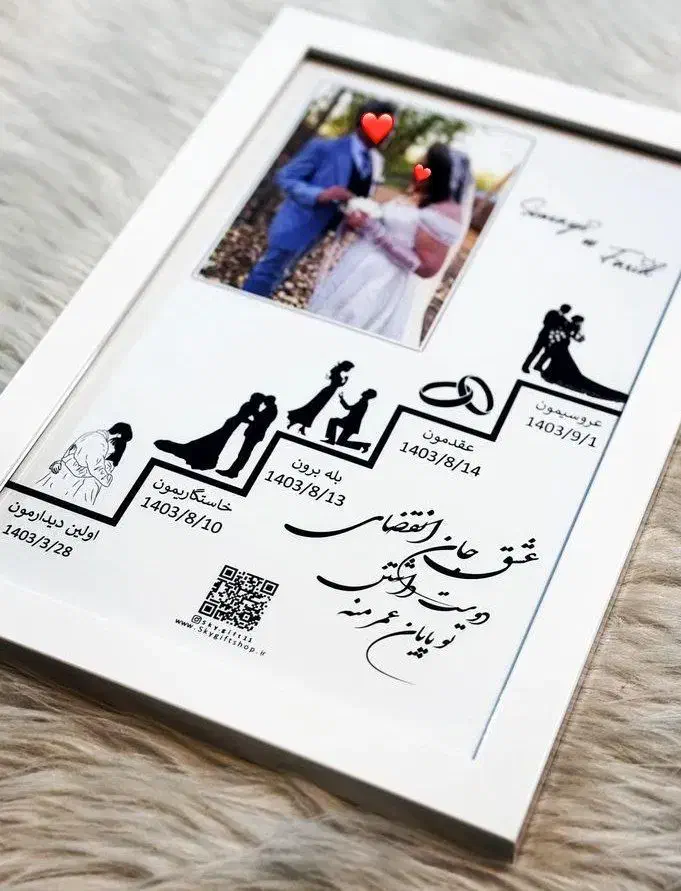 عروسیمون
1403/9/1
عقدمون
1403/8/14
بله برون
1403/8/13
خاستگاریمون
1403/8/10
اولین دیدارمون
1403/3/28
عشق جان انقضای
دوست داشتن
تو پایان عمر منه
Sky.gift11
www.Skygiftshop.ir